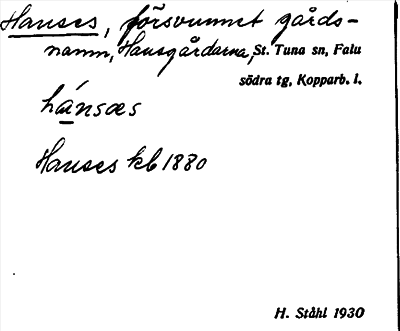 Hanses, försvunnet gårds-
namn, Hansgårdarna, St. Tuna sn, Falu
södra tg, Kopparb. l.
hánsæs
Hanses kb 1880
H. Ståhl 1930